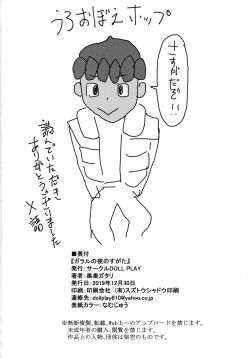 うろおぼえホップ
さすがだぞ!!
読んでいただき
ありがとうございました
メ語
■奥付
『ガラルの夜のすがた』
発行: サークルDOLL PLAY
著者: 黒巣ガタリ
発行日: 2019年12月30日
印刷: 印刷会社 (有)スズトウシャドウ印刷
連絡先: dollplay810@yahoo.co.jp
表紙カラー: なむじゅう
※無断複製、転載、Web上へのアップロードを禁じます。
未成年者の購入、閲覧を禁じます。
作品上の人物、団体は架空のものです。